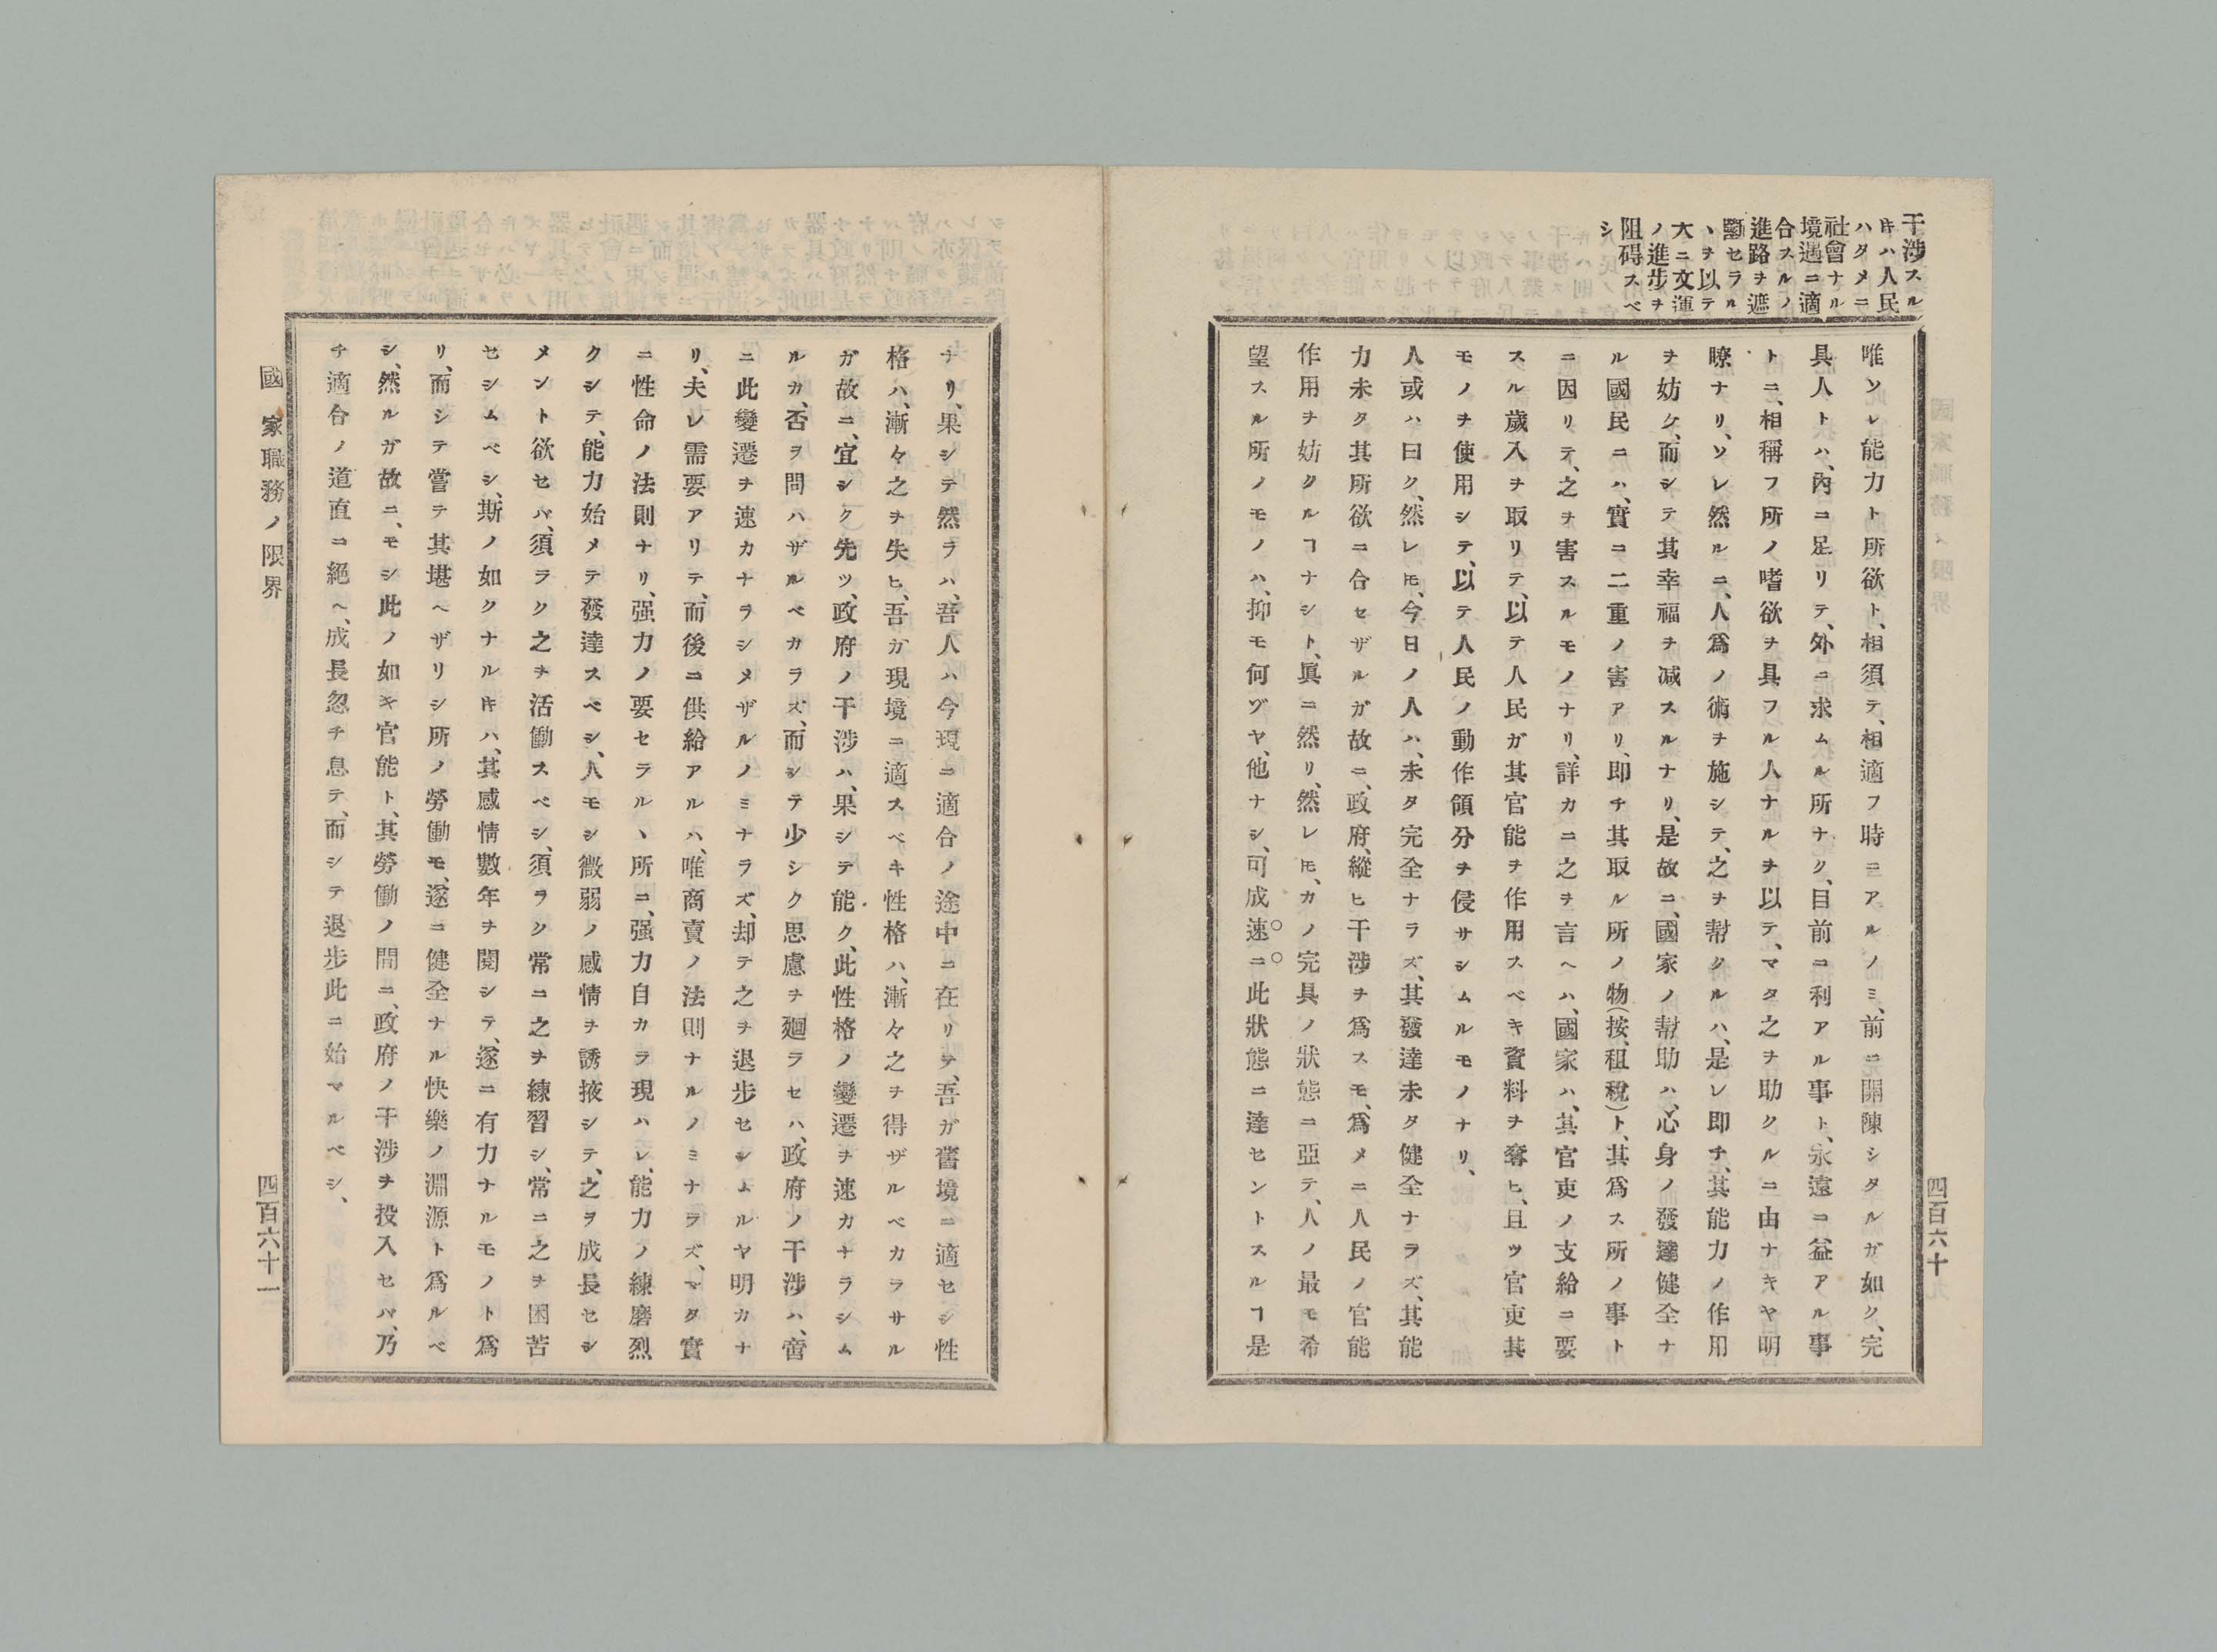 干涉スル
𪜈ハ人民
ハタメニ
社會ナル
境遇ニ適
合スルノ
進路ヲ遮
斷セラル
ヽヲ以テ
大ニ文運
ノ進步ヲ
阻碍スベ
シ
唯ソレ能力ト所欲ト、相須テ、相適フ時ニアルノミ、前ニ開陳シタルガ如ク、完
具人トハ、內ニ足リテ、外ニ求ムル所ナク、目前ニ利アル事ト、永遠ニ益アル事
トニ、相稱フ所ノ嗜欲ヲ具フル人ナルヲ以テ、マタ之ヲ助クルニ由ナキヤ明
瞭ナリ、ソレ然ルニ、人爲ノ術ヲ施シテ、之ヲ幇クルハ、是レ卽チ、其能力ノ作用
ヲ妨ケ、而シテ其幸福ヲ減スルナリ、是故ニ、國家ノ幇助ハ、心身ノ發達健全ナ
ル國民ニハ、實ニ二重ノ害アリ、卽チ其取ル所ノ物(按、租稅)ト、其爲ス所ノ事ト
ニ因リテ、之ヲ害スルモノナリ、詳カニ之ヲ言ヘハ、國家ハ、其官吏ノ支給ニ要
スル歲入ヲ取リテ、以テ人民ガ其官能ヲ作用スベキ資料ヲ奪ヒ、且ツ官吏其
モノヲ使用シテ、以テ人民ノ動作領分ヲ侵サシムルモノナリ、
人或ハ曰ク、然レ𪜈、今日ノ人ハ、未タ完全ナラズ、其發達未タ健全ナラズ、其能
力未タ其所欲ニ合セザルガ故ニ、政府、縱ヒ干涉ヲ爲スモ、爲メニ人民ノ官能
作用ヲ妨クルヿナシト、眞ニ然リ、然レ𪜈、カノ完具ノ狀態ニ亞テ、人ノ最モ希
望スル所ノモノハ、抑モ何ヅヤ、他ナシ、可成速ニ此狀態ニ達セントスルヿ是
四百六十
ナリ、果シテ然ラハ、吾人ハ今現ニ適合ノ途中ニ在リテ、吾ガ舊境ニ適セシ性
格ハ、漸々之ヲ失ヒ、吾ガ現境ニ適スベキ性格ハ、漸々之ヲ得ザルベカラサル
ガ故ニ、宜シク先ツ、政府ノ干涉ハ、果シテ能ク、此性格ノ變遷ヲ速カナラシム
ルカ、否ヲ問ハザルベカラズ、而シテ少シク思慮ヲ廻ラセハ、政府ノ干涉ハ、啻
ニ此變遷ヲ速カナラシメザルノミナラズ、却テ之ヲ退步セシムルヤ明カナ
リ、夫レ需要アリテ、而後ニ供給アルハ、唯商賣ノ法則ナルノミナラズ、マタ實
ニ性命ノ法則ナリ、强力ノ要セラルヽ所ニ、强力自カラ現ハレ、能力ノ練磨烈
クシテ、能力始メテ發達スベシ、人モシ微弱ノ感情ヲ誘掖シテ、之ヲ成長セシ
メント欲セバ、須ラク之ヲ活働スベシ、須ラク常ニ之ヲ練習シ、常ニ之ヲ困苦
セシムベシ、斯ノ如クナル𪜈ハ、其感情數年ヲ閱シテ、遂ニ有力ナルモノト爲
リ、而シテ嘗テ其堪ヘザリシ所ノ勞働モ、遂ニ健全ナル快樂ノ淵源ト爲ルベ
シ、然ルガ故ニ、モシ此ノ如キ官能ト、其勞働ノ間ニ、政府ノ干涉ヲ投入セバ、乃
チ適合ノ道直ニ絕ヘ、成長忽チ息テ、而シテ退步此ニ始マルベシ、
國家職務ノ限界
四百六十一